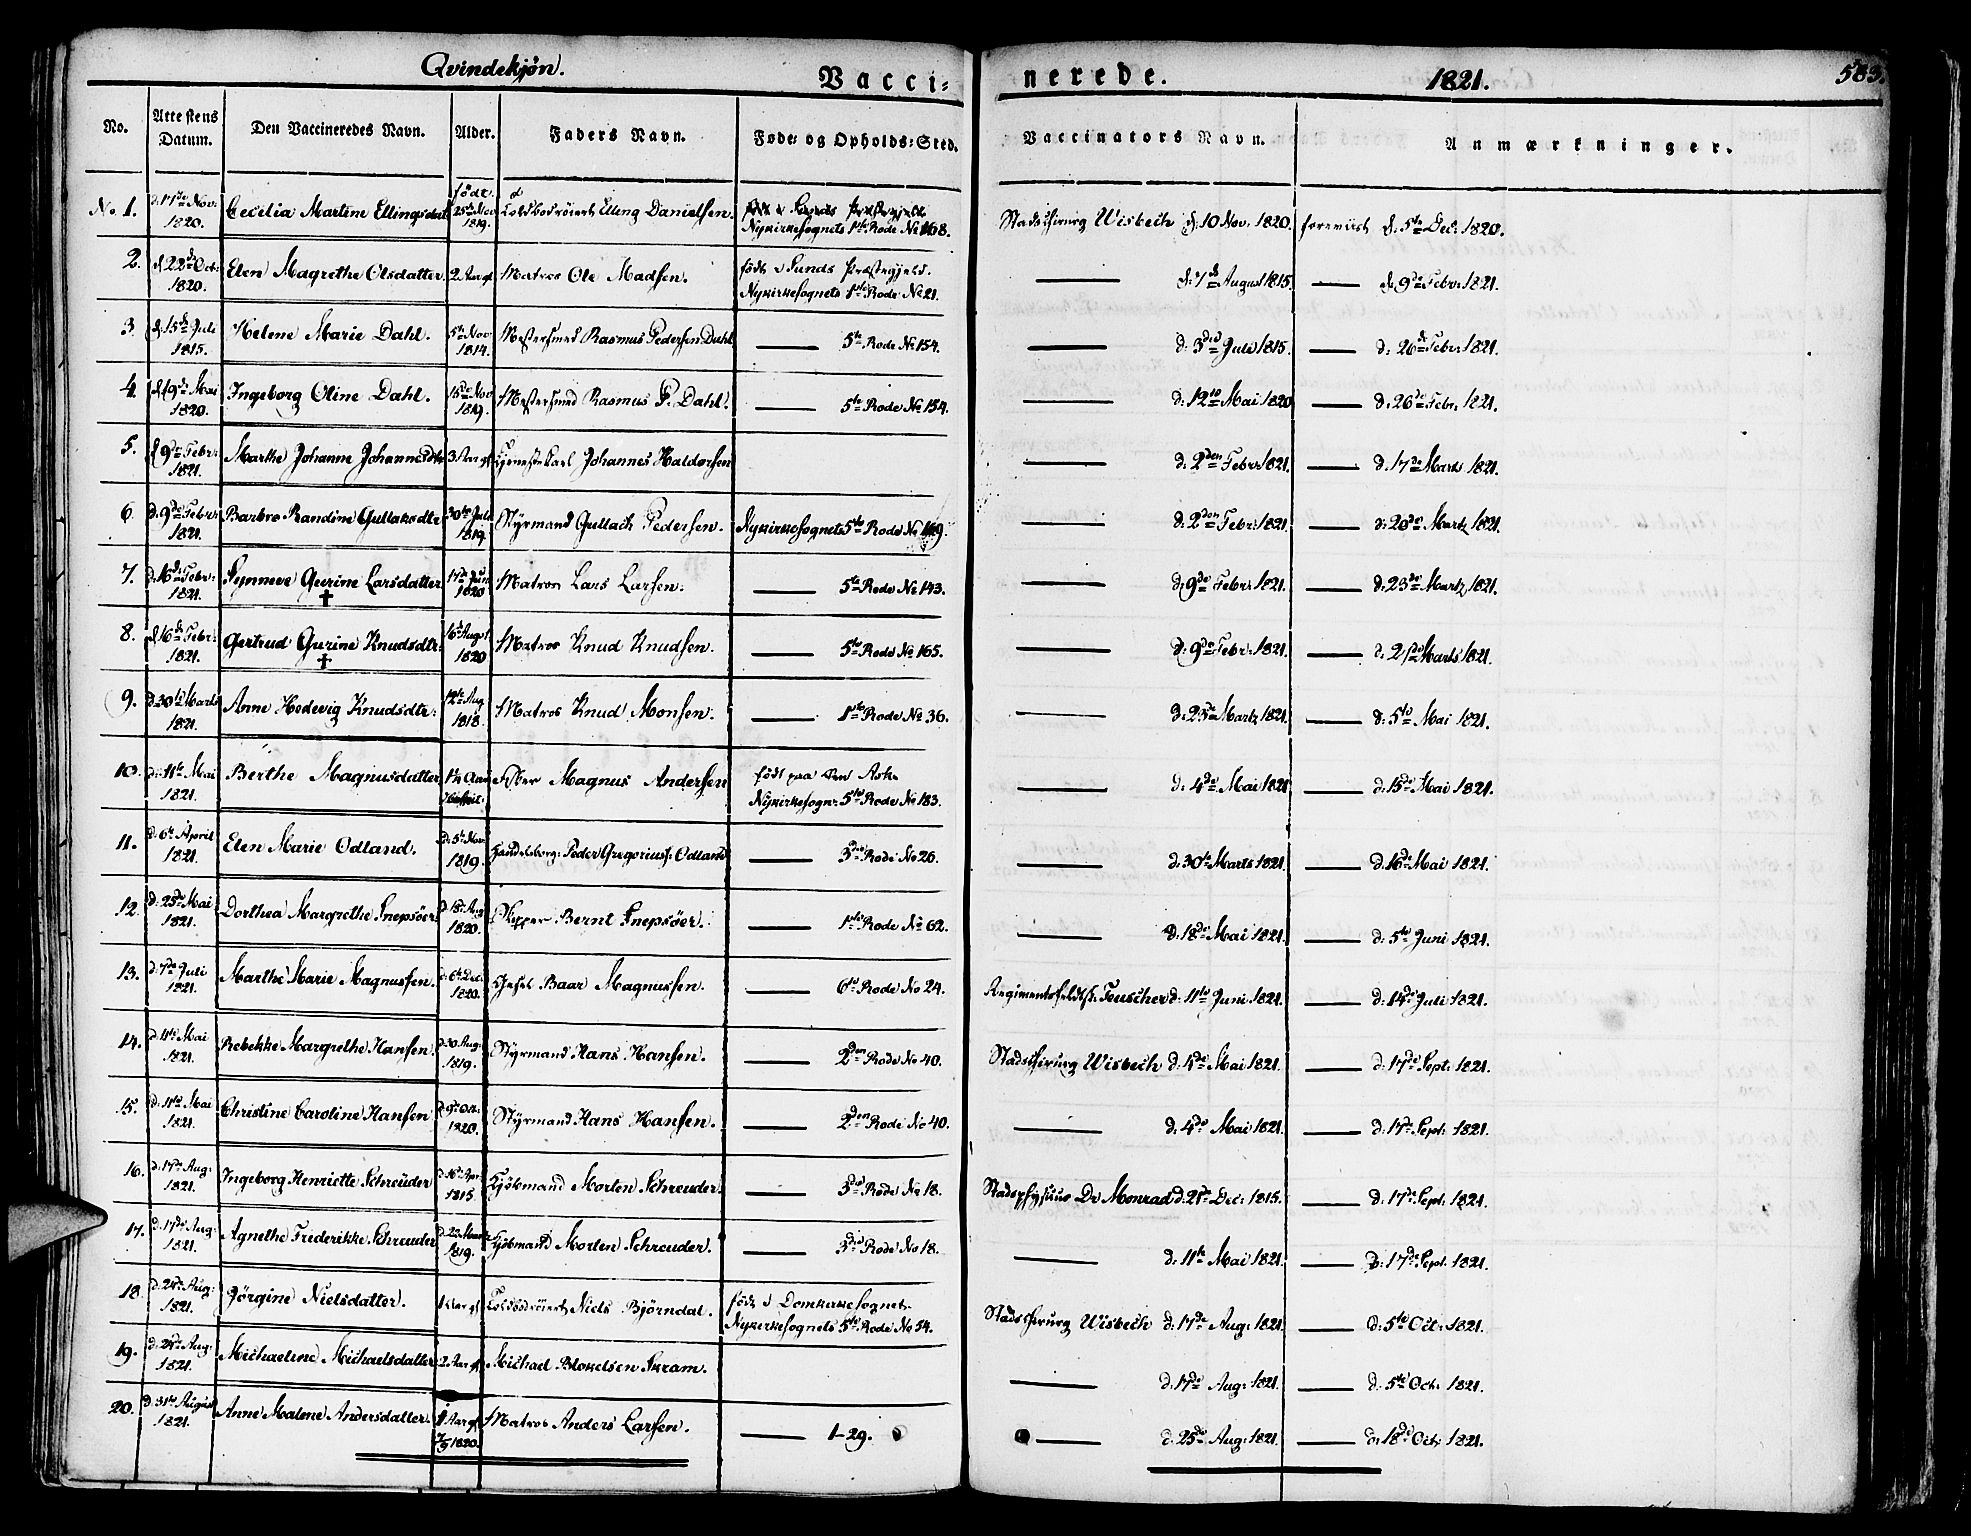 Qvindekjön. Vacci- nerede. 1821. 583.
No. Attestens Datum. Den Vaccineredes Navn. Alder. Faders Navn. Føde- og Opholds-Sted. Vaccinators Navn. Anmærkninger.
No. 1. d: 11te Nov: 1820. Cecilia Martine Ellingsdat födt 25de Nov 1819. Elling Danielsen. Nykirkesognets 1ste Rode No 168. Stadschirurg Wisbech d: 10 Nov. 1820. foreviist d. 5te Dec: 1820.
2. d 22de Oct: 1820. Elen Magrethe Olsdatter 2 Aar gl Matros Ole Madsen. födt i Sunds Præstegjeld. Nykirkesognets 1ste Rode No 21. — d: 7de August 1815. — d: 9de Febr: 1821.
3. d: 15de Juli 1815. Helene Marie Dahl. 5te Nov 1814. Mestersmed Rasmus Pedersen Dahl — 5te Rode No 154. — d: 3die Juli 1815. — d: 26de Febr: 1821.
4. d 19de Mai 1820. Ingeborg Oline Dahl. 15de Nov 1819. Mestersmed Rasmus P. Dahl. — 5te Rode No 154. — d: 12te Mai 1820 — d: 26de Febr: 1821.
5. d 9de Febr: 1821. Marthe Johanne Johannesdtr 3 Aar gl Tjenestekarl Johannes Haldorsen — d: 2den Febr: 1821. — d: 17de Marts 1821.
6. d: 9de Febr: 1821. Barbro Randine Gullaksdtr 30te Juli 1819. Styrmand Gullach Pedersen. Nykirkesognets 5te Rode No 169. — d: 2den Febr: 1821. — d: 20de Martz 1821.
7. d: 16de Febr: 1821. Synneve Gurine Larsdatter † 17de Juni 1820 Matros Lars Larsen. — 5te Rode No 143. — d: 9de Febr: 1821. — d: 23de Martz 1821.
8. d 16de Febr: 1821. Gertrud Gurine Knudsdtr: † 16de August 1820 Matros Knud Knudsen. — 5te Rode No 165. — d: 9de Febr: 1821. — d: 21de Marts 1821.
9. d: 30te Marts 1821. Anne Hedevig Knudsdtr: 12te Aug 1818. Matros Knud Monsen. — 1ste Rode No 36. — d: 23de Martz 1821. — d: 5te Mai 1821.
10. d: 11te Mai 1821. Berthe Magnusdatter 1½ Aar Fisker Magnus Andersen födt paa Ask Nykirkesogn: 5te Rode No 183. — d: 4de Mai 1821 — d: 15de Mai 1821.
11. d: 6te April 1821. Elen Marie Odland. d: 5te Nov 1819. Handelsborg: Peder Gregorius: Odland — 3die Rode No 26. — d: 30te Marts 1821. — d: 16de Mai 1821.
12. d: 25de Mai 1821. Dorthea Margrethe Snepsöer d: 18de Aug 1820. Skipper Bernt Snepsöer. — 1ste Rode No 62. — d: 18de Mai 1821. — d: 5te Juni 1821.
13. d: 7de Juli 1821. Marthe Marie Magnussen. d: 6te Dec. 1820. Baar Magnussen. — 6te Rode No 24. Regimentsfeldtsk: Touscher d: 11te Juni 1821. — d: 14de Juli 1821.
14. d: 11te Mai 1821. Rebekke Margrethe Hansen. d: 30 Aug: 1819. Styrmand Hans Hansen. — 2den Rode No 40. Stadschirurg Wisbech d: 4de Mai 1821. — d: 17de Sept: 1821.
15. d: 11te Mai 1821. Christine Caroline Hansen d: 9de Oct: 1820. Styrmand Hans Hansen. — 2den Rode No 40. — d: 4de Mai 1821. — d: 17de Sept: 1821.
16. d: 17de Aug: 1821. Ingeborg Henriette Schreuder d: 16de Apr: 1815. Kjöbmand Morten Schreuder. — 3die Rode No 18. Stadsphysicus Dr Monrad d: 21de Dec: 1815. — d: 17de Sept: 1821.
17. d: 17de Aug: 1821. Agnethe Friderikke Schreuder d: 22 Marts 1819. Kjöbmand Morten Schreuder. — 3die Rode No 18. — d: 11te Mai 1821. — d: 17de Sept. 1821.
18. d: 24de Aug: 1821. Jörgine Nielsdatter. 1 Aar gl Niels Björndal. födt i Domkirkesognet. Nykirkesognets 5te Rode No 54. Stadschirurg Wisbech d: 17de Aug: 1821. — d: 5te Oct: 1821.
19. d: 24de Aug: 1821. Michaeline Michaelsdatter 2 Aar gl Michael Blokelsen Skram. — d: 17de Aug: 1821. — d: 5te Oct: 1821.
20. d: 31te August 1821. Anne Malene Andersdatter. 1 Aar gl 7/5 1820. Matros Anders Larsen. — 1-29. — d: 25de Aug: 1821. — d: 18de Oct: 1821.